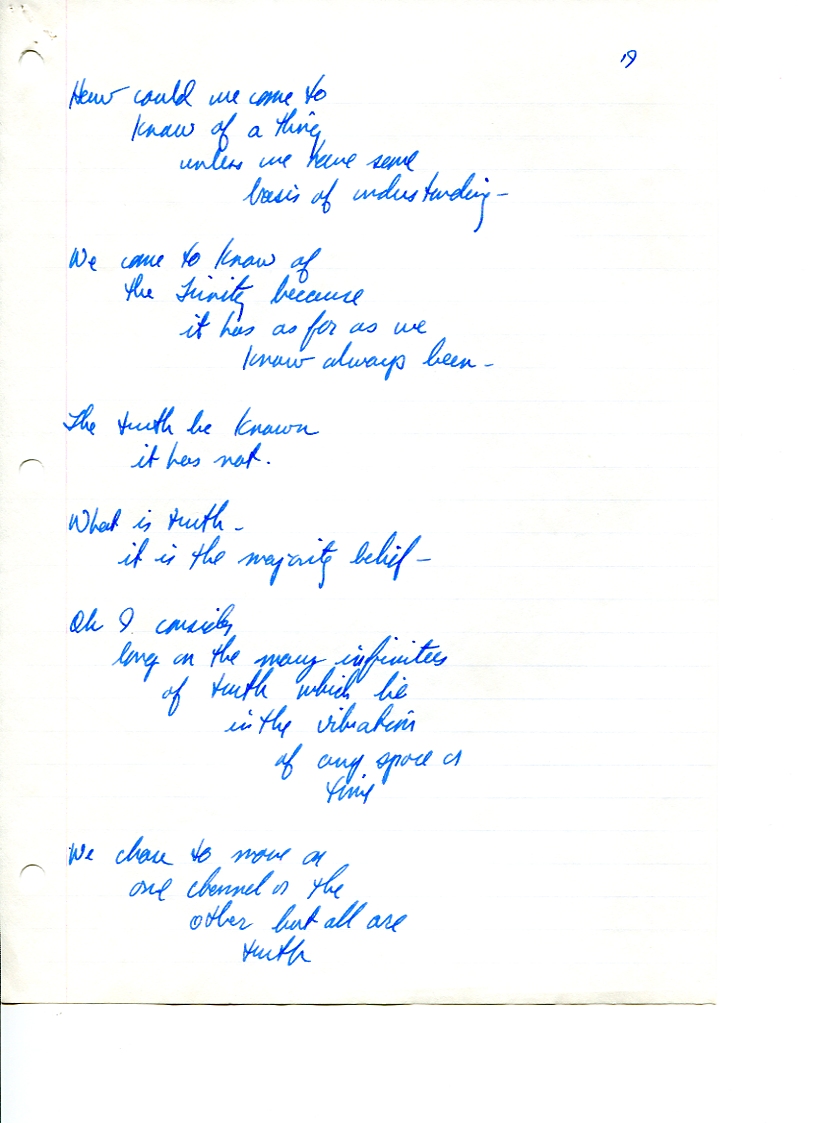 19
How could we come to
know of a thing
unless we have some
basis of understanding –
We come to know of
the Trinity because
it has as far as we
know always been –
The truth be known
it has not.
What is truth –
it is the majority belief –
Oh I consider
long on the many infinitees
of truth which lie
in the vibration
of any space or
time
We chose to move on
one channel or the
other but all are
truth